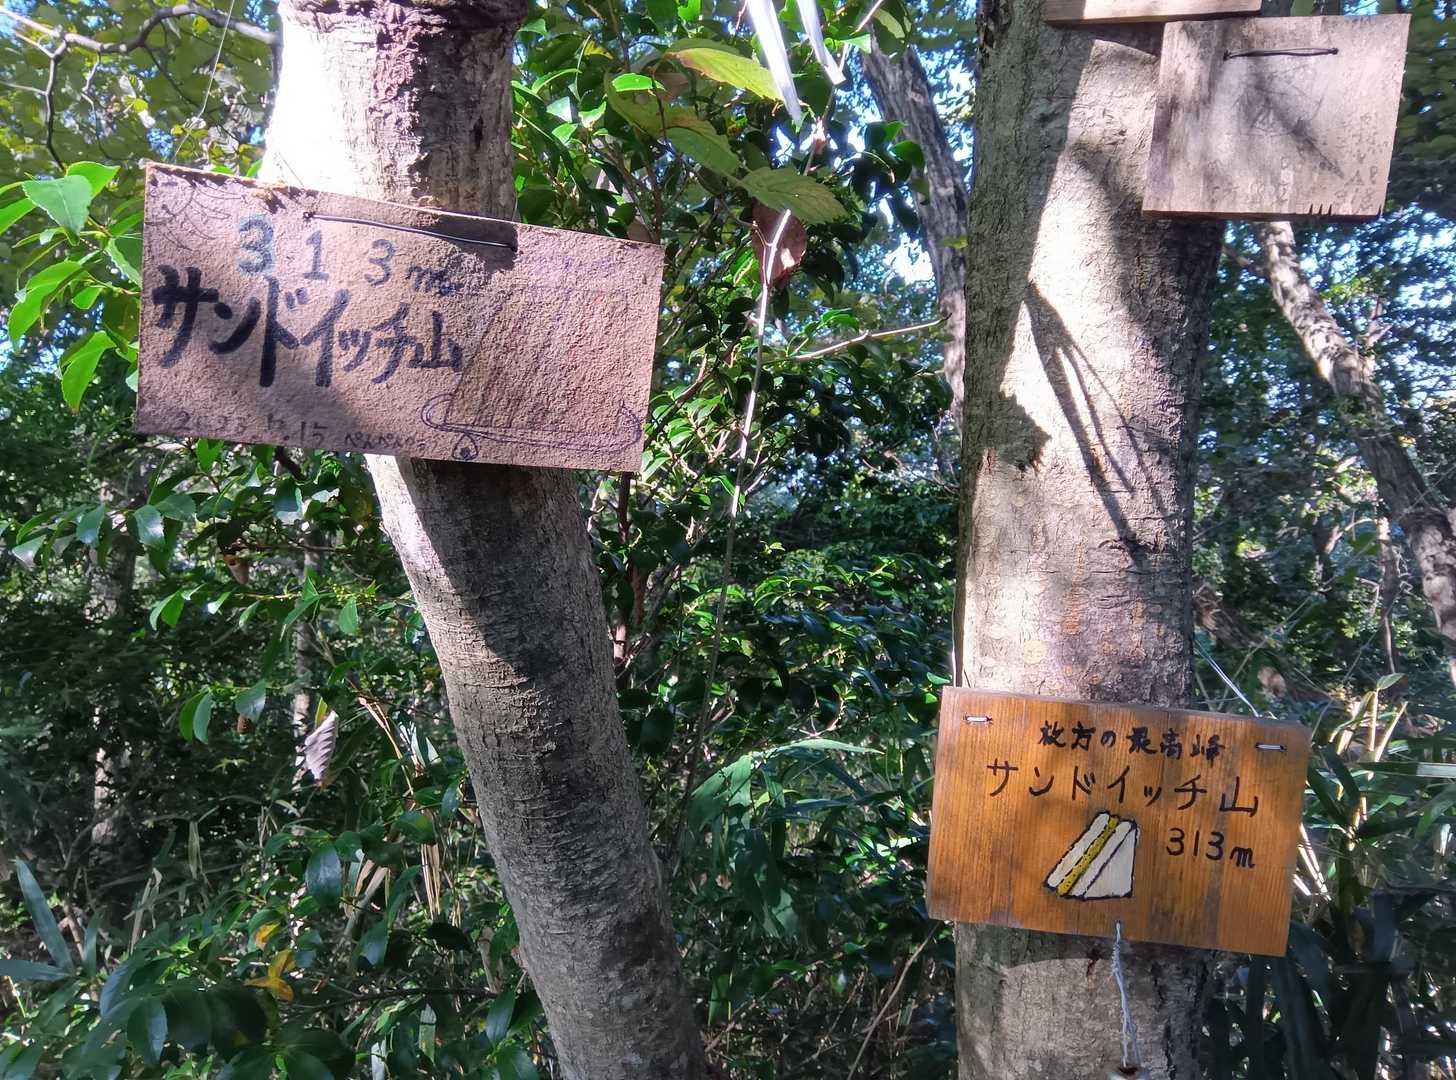 313m
サンドイッチ山
枚方の最高峰
サンドイッチ山
313m